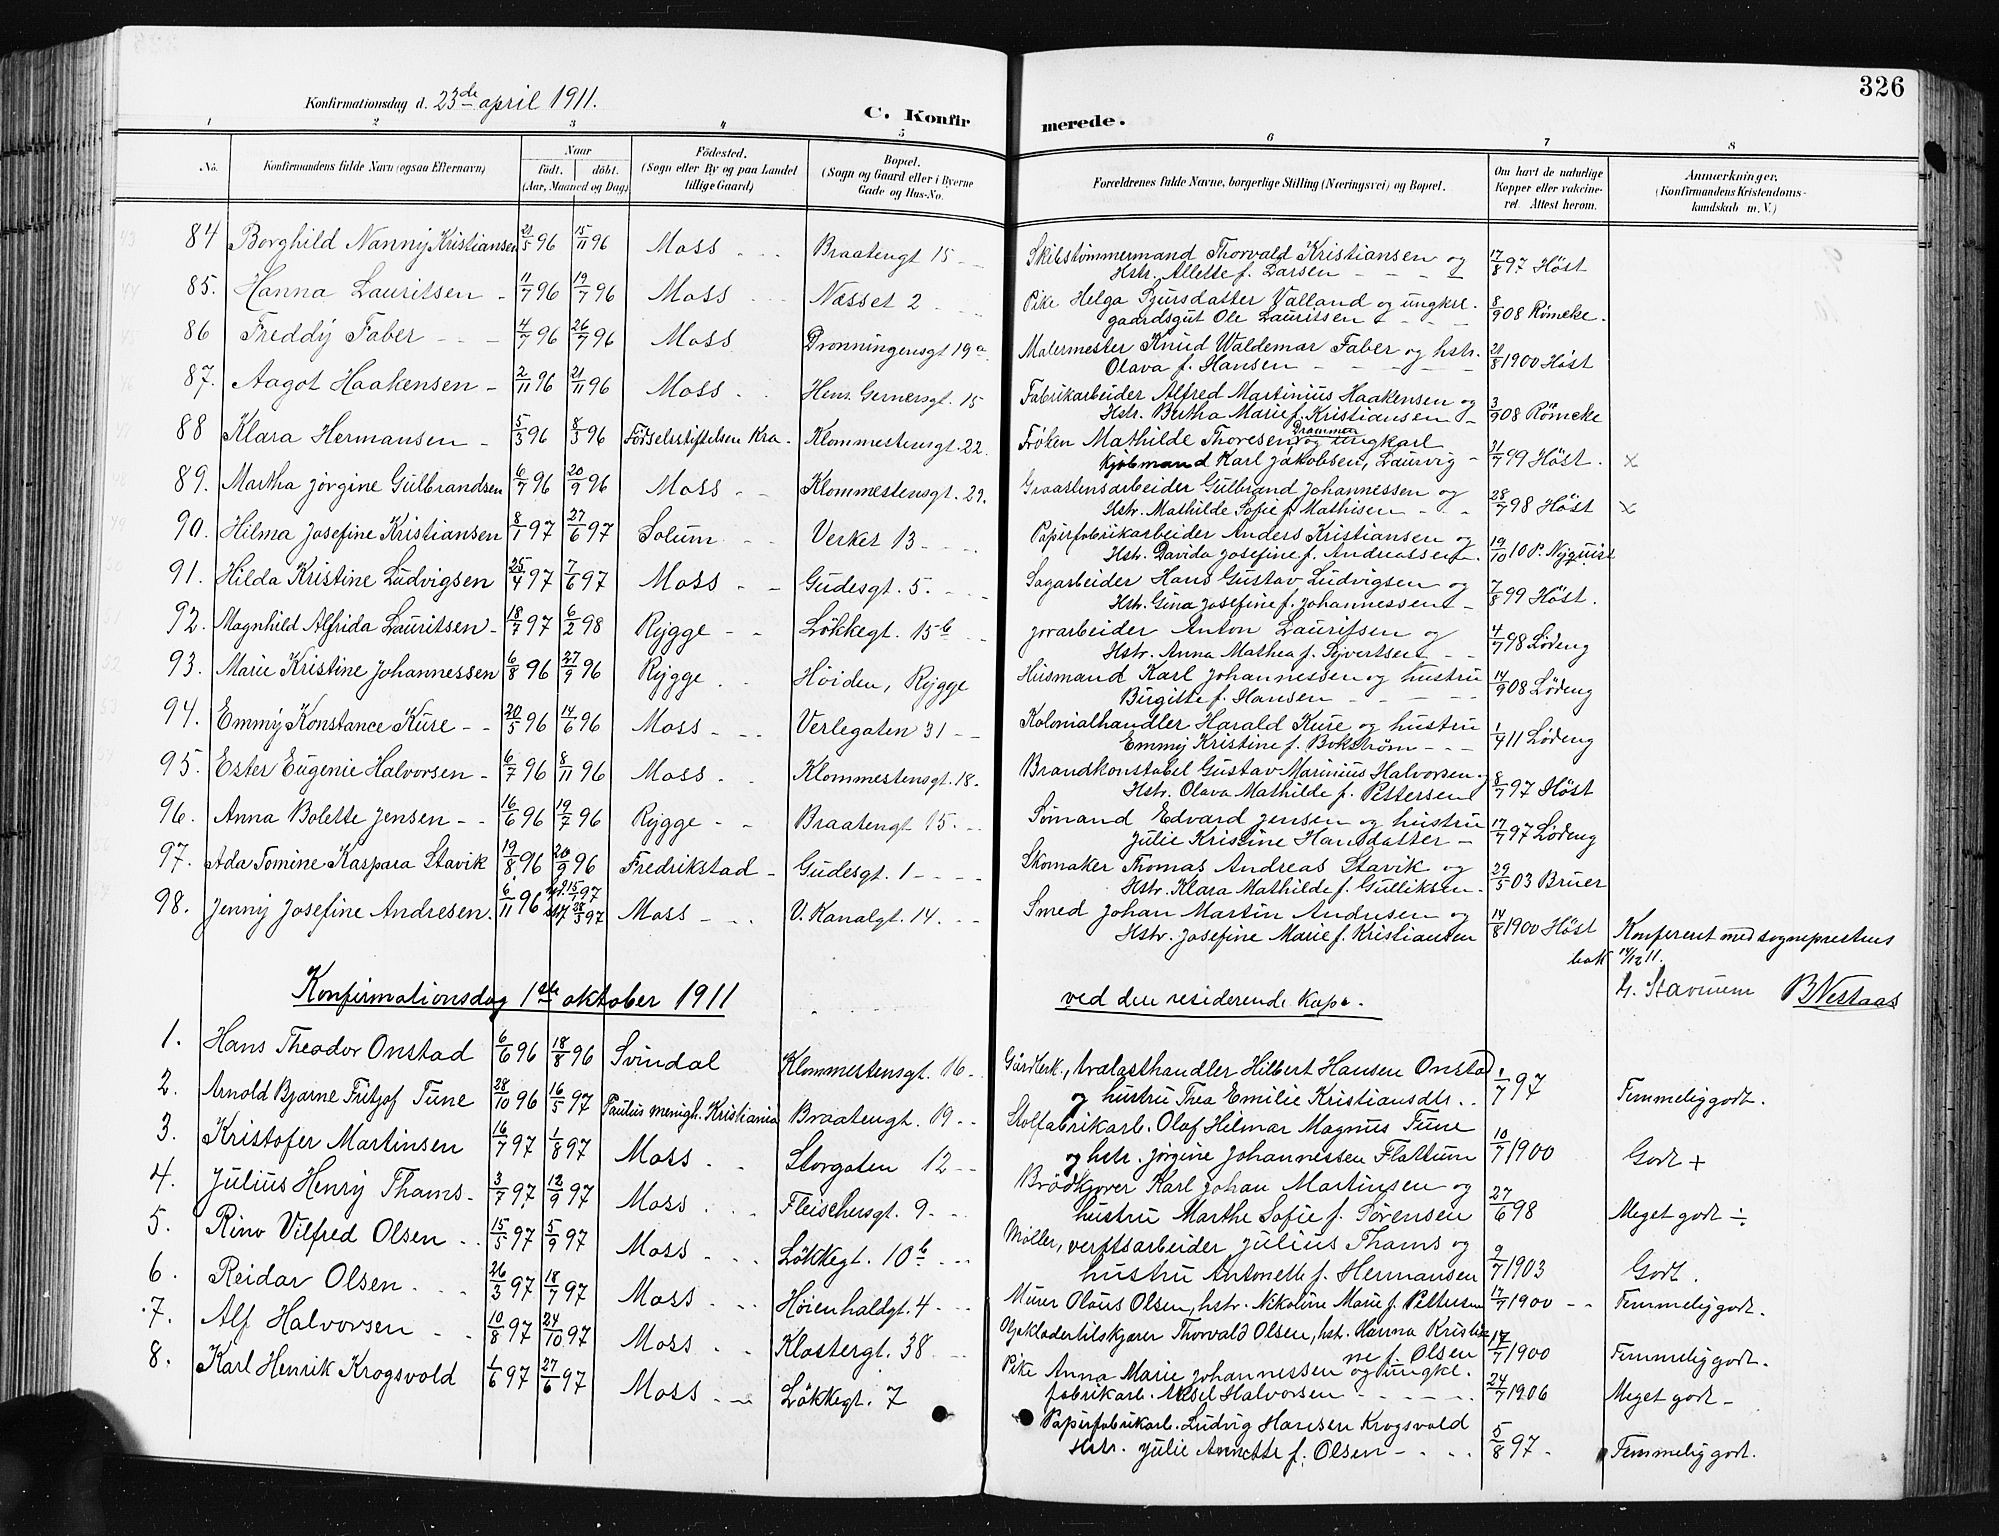 326
Konfirmationsdag d. 23de april 1911.
C. Konfirmerede.
1 2 3 4 5 6 7 8
No. Konfirmandens fulde Navn (ogsaa Efternavn) Naar født. døbt. (Aar, Maaned og Dag) Fødested. (Sogn eller By og paa Landet tillige Gaard) Bopæl. (Sogn og Gaard eller i Byerne Gade og Hus-No. Forældrenes fulde Navne, borgerlige Stilling (Næringsvei) og Bopæl. Om havt de naturlige Kopper eller vakcineret. Attest herom. Anmærkninger. (Konfirmandens Kristendomskundskab m. V.)
84 Borghild Nanny Kristiansen 21/5 96 15/11 96 Moss Braatengt 15 Skibstømmermand Thorvald Kristiansen og 17/8 97 Höst
Hstr. Allette f. Larsen
85. Hanna Lauritsen 11/7 96 19/7 96 Moss Næsset 2 Pike Helga Sjursdatter Valland og ungkrl. 8/9 08 Römcke.
gaardsgut Ole Lauritsen
86 Freddy Faber 4/7 96 26/7 96 Moss Dronningensgt 19a Malermester Knud Waldemar Faber og hstr. 21/8 1900 Höst
Olava f. Hansen
87. Aagot Haakensen 2/11 96 21/11 96 Moss Hen. Gernersgt. 15 Fabrikarbeider Alfred Martinius Haakensen og 3/9 08 Römcke
Hstr. Bertha Marie f. Kristiansen
88 Klara Hermansen 5/3 96 8/3 96 Födselsstiftelsen Kra. Klommestensgt. 22. Frøken Mathilde Thoresen Drammen og ungkarl 31/7 99 Höst. x
Kjøbmand Karl Jakobsen, Laurvig
89. Martha Jörgine Gulbrandsen 6/7 96 20/9 96 Moss Klommestensgt. 29. Graastensarbeider Gulbrand Johannessen og 28/7 98 Höst x
Hstr. Mathilde Sofie f. Mathisen
90. Hilma Josefine Kristiansen 8/1 97 27/6 97 Solum Verket 13 Papirfabrikarbeider Anders Kristiansen og 19/10 10 P. Nyquist
Hstr. Davida Josefine f. Andreassen
91. Hilda Kristine Ludvigsen 25/4 97 7/6 97 Moss Gudesgt. 5. Sagarbeider Hans Gustav Ludvigsen og 7/8 99 Höst.
Hstr. Gina Josefine f. Johannessen
92. Magnhild Alfrida Lauritsen 18/7 97 6/2 98 Rygge Løkkegt. 15b Jorarbeider Anton Lauritsen og 4/7 98 Lødeng
Hstr. Anna Mathea f. Syvertsen
93. Marie Kristine Johannessen 6/8 96 27/9 96 Rygge Höiden, Rygge Husmand Karl Johannessen og hustru 14/9 08 Lødeng
Birgitte f. Hansen
94. Emmy Konstance Kure 20/5 96 14/6 96 Moss Verlegaten 31 Kolonialhandler Harald Kure og hustru 1/4 11 Lødeng
Emmy Kristine f. Bokstrøm
95. Ester Eugenie Halvorsen 6/7 96 8/11 96 Moss Klommestensgt. 18. Brandkonstabel Gustav Marinius Halvorsen og 8/7 97 Höst
Hstr. Olava Mathilde f. Pettersen
96. Anna Bolette Jensen 16/6 96 19/7 96 Rygge Braatengt 15. Sømand Edvard Jensen og hustru 17/7 97 Lødeng
Julie Kristine Hansdatter
97. Ada Tomine Kaspara Stavik 19/8 96 20/9 96 Fredrikstad Gudesgt. 1 Skomaker Thomas Andreas Stavik og 29/5 03 Bruer
Hstr. Klara Mathilde f. Gulliksen
98. Jenny Josefine Andresen. 6/11 96 15/1 97 28/3 97 Moss V. Kanalgt. 14. Smed Johan Martin Andresen og 14/8 1900 Höst
Hstr. Josefine Marie f. Kristiansen
Konfereret med sogneprestens
bok 14/12 11.
Stavnem B Nestaas
Konfirmationsdag 1ste oktober 1911 ved den residerende Kap.
1. Hans Theodor Onstad 6/6 96 18/8 96 Svindal Klommestensgt. 16 Gårdbrk., trælasthandler Hilbert Hansen Onstad 1/7 97 Temmelig godt.
og hustru Thea Emilie Kristiansdtr.
2. Arnold Bjarne Fritjof Tune 28/10 96 16/5 97 Paulus menigh. Kristiania Braatengt. 19 Stolfabrikarb. Olaf Hilmar Magnus Tune 10/7 1900 Godt +
og hstr. Jörgine Johannessen Flattum
3. Kristofer Martinsen 16/7 97 1/8 97 Moss Storgaten 12 Brödkjører Karl Johan Martinsen og 27/6 98 Meget godt ÷
hustru Marthe Sofie f. Sørensen
4. Julius Henry Thams 3/7 97 12/9 97 Moss Fleischersgt. 9 Møller, verftsarbeider Julius Thams og 9/7 1903 Godt.
hustru Antonette f. Hermansen
5. Rino Vilfred Olsen 15/5 97 5/9 97 Moss Løkkegt. 10b Murer Olaus Olsen, hstr. Nikoline Marie f. Pettersen 17/7 1900 Temmelig godt.
6. Reidar Olsen 26/3 97 18/7 97 Moss Høienhaldgt. 4 Oljeklædertilskjærer Thorvald Olsen, hst. Hanna Kristine f. Olsen 17/7 1900 Temmelig godt.
7. Alf Halvorsen 10/8 97 24/10 97 Moss Klostergt. 38 Pike Anna Marie Johannessen og ungk. 24/7 1906 Meget godt
fabrikarb. Aksel Halvorsen
8. Karl Henrik Krogsvold 1/6 97 27/6 97 Moss Løkkegt. 7 Papirfabrikarb. Ludvig Hansen Krogsvold 5/8 97 Temmelig godt.
Hstr. Julie Annette f. Olsen